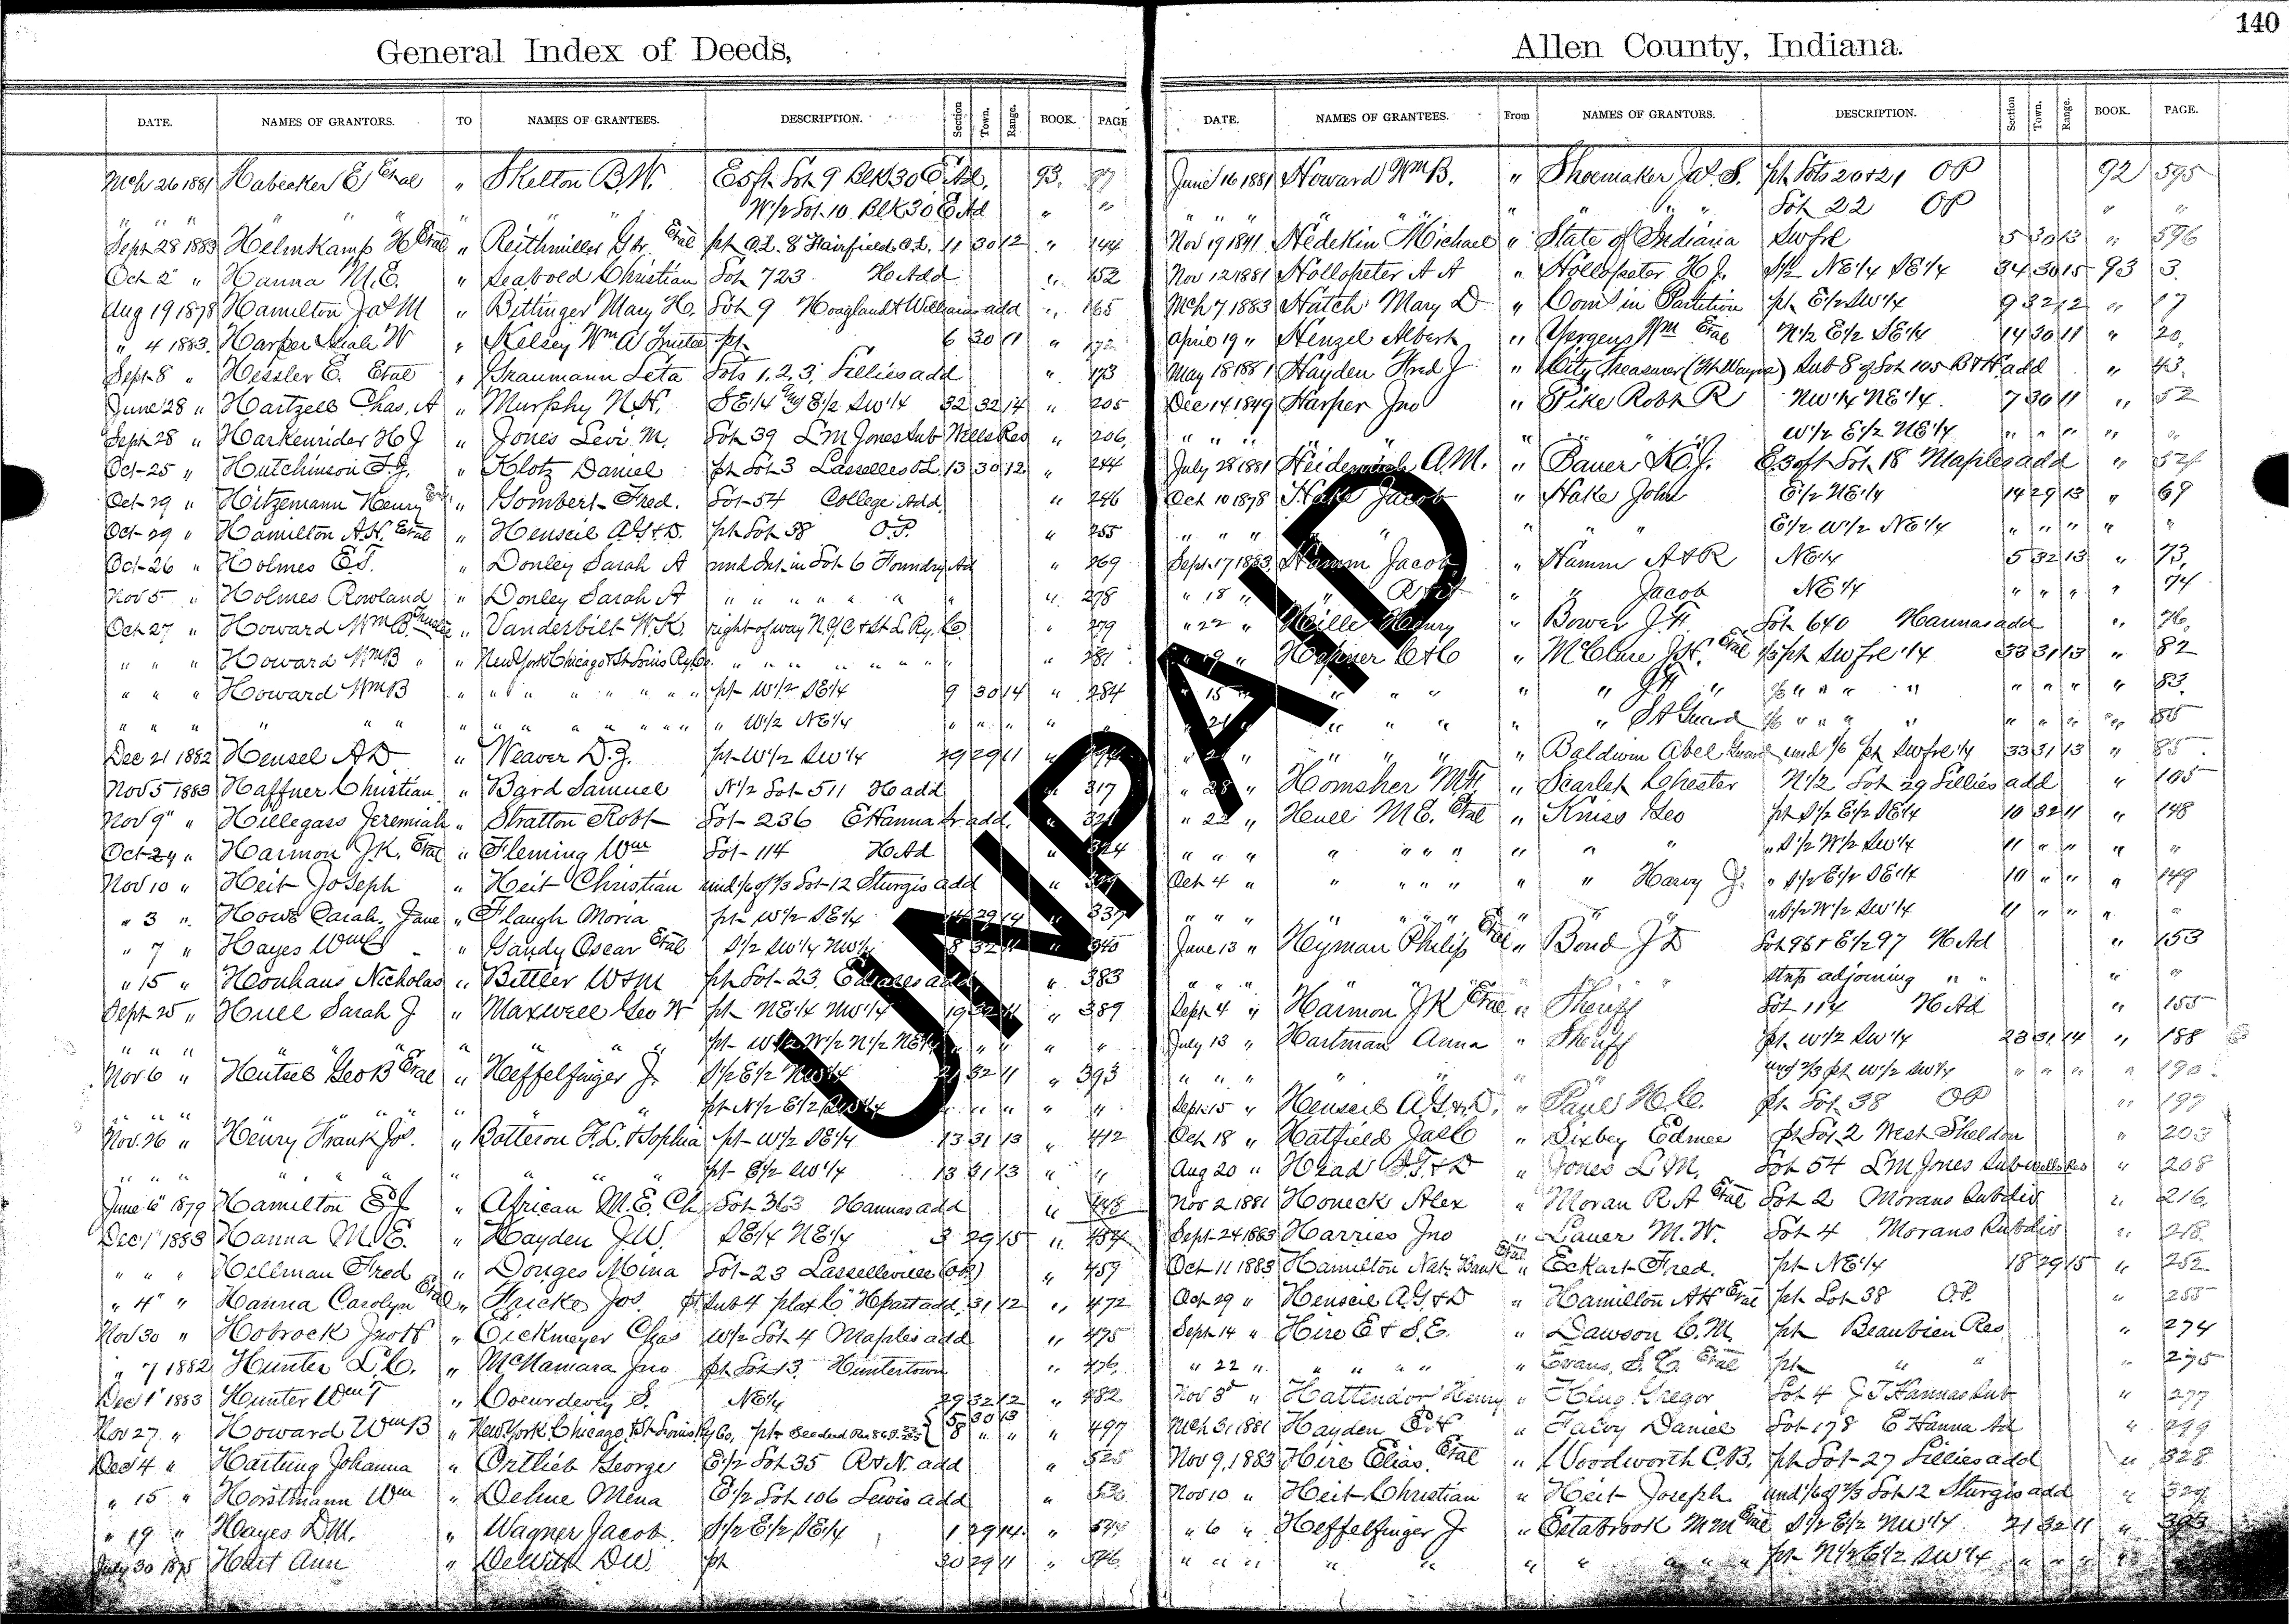 140
General Index of Deeds,
DATE. NAMES OF GRANTORS. TO NAMES OF GRANTEES. DESCRIPTION. Section Town. Range. BOOK. PAGE
Mch 26 1881 Habecker E Etal " Skelton B.W. E 50 ft Lot 9 Blk 30 E. Ad. 93.
" " " " " " " W 1/2 Lot 10 Blk 30 E Ad " "
Sept 28 1883 Helmkamp H Etal " Reithmiller G Etal pt O.L. 8 Fairfield O.L. 11 30 12 " 144
Oct 2 " Hanna M.E. " Seabold Christian Lot 723 H Add " 152
Aug 19 1878 Hamilton Jas M " Bittinger Mary H. Lot 9 Hoagland & Williams add " 165
" 4 1883. Harper W " Kelsey Wm A Trustee pt 6 30 11 " 172
Sept 8 " Hessler E. Etal " Graumann Leta Lots 1, 2, 3, Lillies add " 173
June 28 " Hartzell Chas. A " Murphy N.H. SE 1/4 & E 1/2 SW 1/4 32 32 14 " 205
Sept 28 " Harkenrider H J " Jones Levi M. Lot 39 L M Jones Sub Wells Res " 206
Oct 25 " Hutchinson F.G. " Klotz Daniel pt Lot 3 Lasselles O.L. 13 30 12 " 244
Oct 29 " Hitzemann Henry " Gombert Fred. Lot 54 College Add " 246
Oct 29 " Hamilton A.H. Etal " Henseil A.G. & D. pt Lot 38 O.P. " 255
Oct 26 " Holmes E.T. " Donley Sarah A und Int. in Lot 6 Foundry Ad " 269
Nov 5 " Holmes Rowland " Donley Sarah A " " " " " " " 278
Oct 27 " Howard Wm B Trustee " Vanderbilt W.K. right of way N.Y.C. & St. L Ry. Co. " 279
" " " Howard Wm B " " New York Chicago & St Louis Ry Co. " " " " " " " " 281
" " " Howard Wm B " " " " " " " " pt W 1/2 SE 1/4 9 30 14 " 284
" " " " " " " " " " " " " " " W 1/2 NE 1/4 " " " " "
Dec 21 1882 Hensel A D " Weaver D.J. pt W 1/2 SW 1/4 29 29 11 " 294
Nov 5 1883 Haffner Christian " Bard Samuel N 1/2 Lot 511 H add " 317
Nov 9 " Hillegass Jeremiah " Stratton Robt Lot 236 E Hanna Sr. add. " 321
Oct 24 " Harmon J.K. Etal " Fleming Wm Lot 114 H Ad " 324
Nov 10 " Heit Joseph " Heit Christian und 1/6 of 2/3 Lot 12 Sturgis add " 329
" 3 " Hows Carah Jane " Flaugh Moria pt W 1/2 SE 1/4 14 29 14 " 337
" 7 " Hayes Wm " Gandy Oscar Etal S 1/2 SW 1/4 NW 1/4 8 32 11 " 340
" 15 " Honhaus Nicholas " Bittler W & M pt Lot 23 add " 383
Sept 25 " Hull Sarah J " Maxwell Geo W pt NE 1/4 NW 1/4 19 32 11 " 389
" " " " " " " " " pt W 1/2 W 1/2 N 1/2 NE 1/4 " " " " "
Nov 6 " Hutsel Geo B Etal " Heffelfinger J. S 1/2 E 1/2 NW 1/4 21 32 11 " 393
" " " " " " " pt N 1/2 E 1/2 SW 1/4 " " " " "
Nov. 26 " Henry Frank Jos. " Batteron F.L. & Sophia pt W 1/2 SE 1/4 13 31 13 " 412
" " " " " " " " " " pt E 1/2 SW 1/4 13 31 13 " "
June 6 1879 Hamilton E J " African M.E. Ch Lot 363 Hannas add " 448
Dec 1 1883 Hanna M.E. " Hayden J.W. SE 1/4 NE 1/4 3 29 15 " 454
" " " Hellman Fred " Donges Mina Lot 23 Lasselleville (O.P.) " 459
" 4 " Hanna Carolyn Etal " Fricke Jos. pt Sub 4 plat C Hpart add. 31 12 " 472
Nov 30 " Hobrock Jno H " Eickmeyer Chas W 1/2 Lot 4 Maples add " 475
" 7 1882 Hunter L.C. " McNamara Jno pt Lot 13 Huntertown " 476
Dec 1 1883 Hunter Wm T " Coeurdevey S. NE 1/4 29 32 12 " 482
Nov 27 " Howard Wm B " New York, Chicago, & St Louis Ry Co. pt See deed 5 30 13 8 " " " 497
Dec 4 " Hartung Johanna " Ortlieb George E 1/2 Lot 35 R & N. add " 525
" 15 " Horstmann Wm " Dehne Mena E 1/2 Lot 106 Lewis add " 530
" 19 " Hayes D.M. " Wagner Jacob S 1/2 E 1/2 SE 1/4 1 29 14 "
July 30 1875 Hart Ann " DeWitt D.W. pt 30 29 11 " 576
Allen County, Indiana.
DATE. NAMES OF GRANTEES. From NAMES OF GRANTORS. DESCRIPTION. Section Town. Range. BOOK. PAGE.
June 16 1881 Howard Wm B. " Shoemaker W. S. pt Lots 20 & 21 OP 92 595
" " " " " " " " " " Lot 22 OP " "
Nov 19 1841 Hedekin Michael " State of Indiana SW frl 5 30 13 " 596
Nov 12 1881 Hollopeter A A " Hollopeter H J. S 1/2 NE 1/4 SE 1/4 34 30 15 93 3
Mch 7 1883 Hatch Mary D " Com in Partition pt E 1/2 SW 1/4 9 32 12 " 17
April 19 " Henzel Albert " Yergens Wm Etal N 1/2 E 1/2 SE 1/4 14 30 11 " 20
May 18 1881 Hayden Fred J " City Treasurer (Ft Wayne) Sub 8 of Lot 105 B & H add " 43
Dec 14 1849 Harper Jno " Pike Robt R NW 1/4 NE 1/4 7 30 11 " 52
" " " " " " " W 1/2 E 1/2 NE 1/4 " " " " "
July 28 1881 Heidenreich A.M. " Bauer K.J. E 30 ft Lot 18 Maples add " 57
Oct 10 1878 Hake Jacob " Hake John E 1/2 NE 1/4 14 29 13 " 69
" " " " " " " E 1/2 W 1/2 NE 1/4 " " " " "
Sept. 17 1883 Hamm Jacob " Hamm A & R NE 1/4 5 32 13 " 73
" 18 " " " " Jacob NE 1/4 " " " " 74
" 22 " Heille Henry " Bower J.H. Lot 640 Hannas add " 76
" 19 " Hepner C & C " McClure J.H. Etal 1/3 pt SW frl 1/4 33 31 13 " 82
" 15 " " " " " " " " " " " " " " " 83
" 21 " " " " " " S A Guard 1/6 " " " " " " " " 85
" 21 " " " " " Baldwin Abel Guard und 1/6 pt SW frl 1/4 33 31 13 " 85
" 28 " Homsher M.H. " Scarlet Chester N 1/2 Lot 29 Lillies add " 105
" 22 " Hull M E. Etal " Kniss Geo pt S 1/2 E 1/2 SE 1/4 10 32 11 " 148
" " " " " " " " " " " S 1/2 W 1/2 SW 1/4 11 " " " "
Oct 4 " " " " " " " Harvy J. " S 1/2 E 1/2 SE 1/4 10 " " " 149
" " " " " " " " " " " S 1/2 W 1/2 SW 1/4 11 " " " "
June 13 " Heyman Philip Etal " Bond J D Lot 96 & E 1/2 97 H Ad " 153
" " " " " " " strip adjoining " " " "
Sept 4 " Harmon J K Etal " Sheriff Lot 114 H Ad " 155
July 13 " Hartman Anna " Sheriff pt W 1/2 SW 1/4 23 31 14 " 188
" " " " " " " und 2/3 pt W 1/2 SW 1/4 " " " " 190
Sept. 15 " Henseil A.G. & D. " Paul H.C. pt Lot 38 OP "
Oct 18 " Hatfield Jas C " Bixbey Edmee pt Lot 2 West Sheldon " 203
Aug 20 " Head & D " Jones L M. Lot 54 L M Jones Sub Wells Res " 208
Nov 2 1881 Honeck Alex " Moran R A Etal Lot 2 Morans Subdiv " 216
Sept 24 1883 Harries Jno " Lauer M.W. Lot 4 Morans Subdiv " 218
Oct 11 1883 Hamilton Nat. Bank Etal " Eckart Fred. pt NE 1/4 18 29 15 " 252
Oct 29 " Henseil A.G. & D " Hamilton A H Etal pt Lot 38 O.P. " 255
Sept 14 " Hire E & S.E. " Dawson C.M. pt Beaubien Res " 274
" 22 " " " " " " Evans, S. C. Etal pt " " " 275
Nov 3 " Hattendorf Henry " King Gregor Lot 4 J T Hannas Sub " 277
Mch 31 1881 Hayden " Falvy Daniel Lot 178 E Hanna Ad " 299
Nov 9, 1883 Hire Elias Etal " Woodworth C.B. pt Lot 27 Lillies add " 328
Nov 10 " Heit Christian " Heit Joseph und 1/6 of 2/3 Lot 12 Sturgis add " 329
" 6 " Heffelfinger J " Estabrook M M Etal S 1/2 E 1/2 NW 1/4 21 32 11 " 393
" " " " " " " " " " pt N 1/2 E 1/2 SW 1/4 " " " "
UNPAID